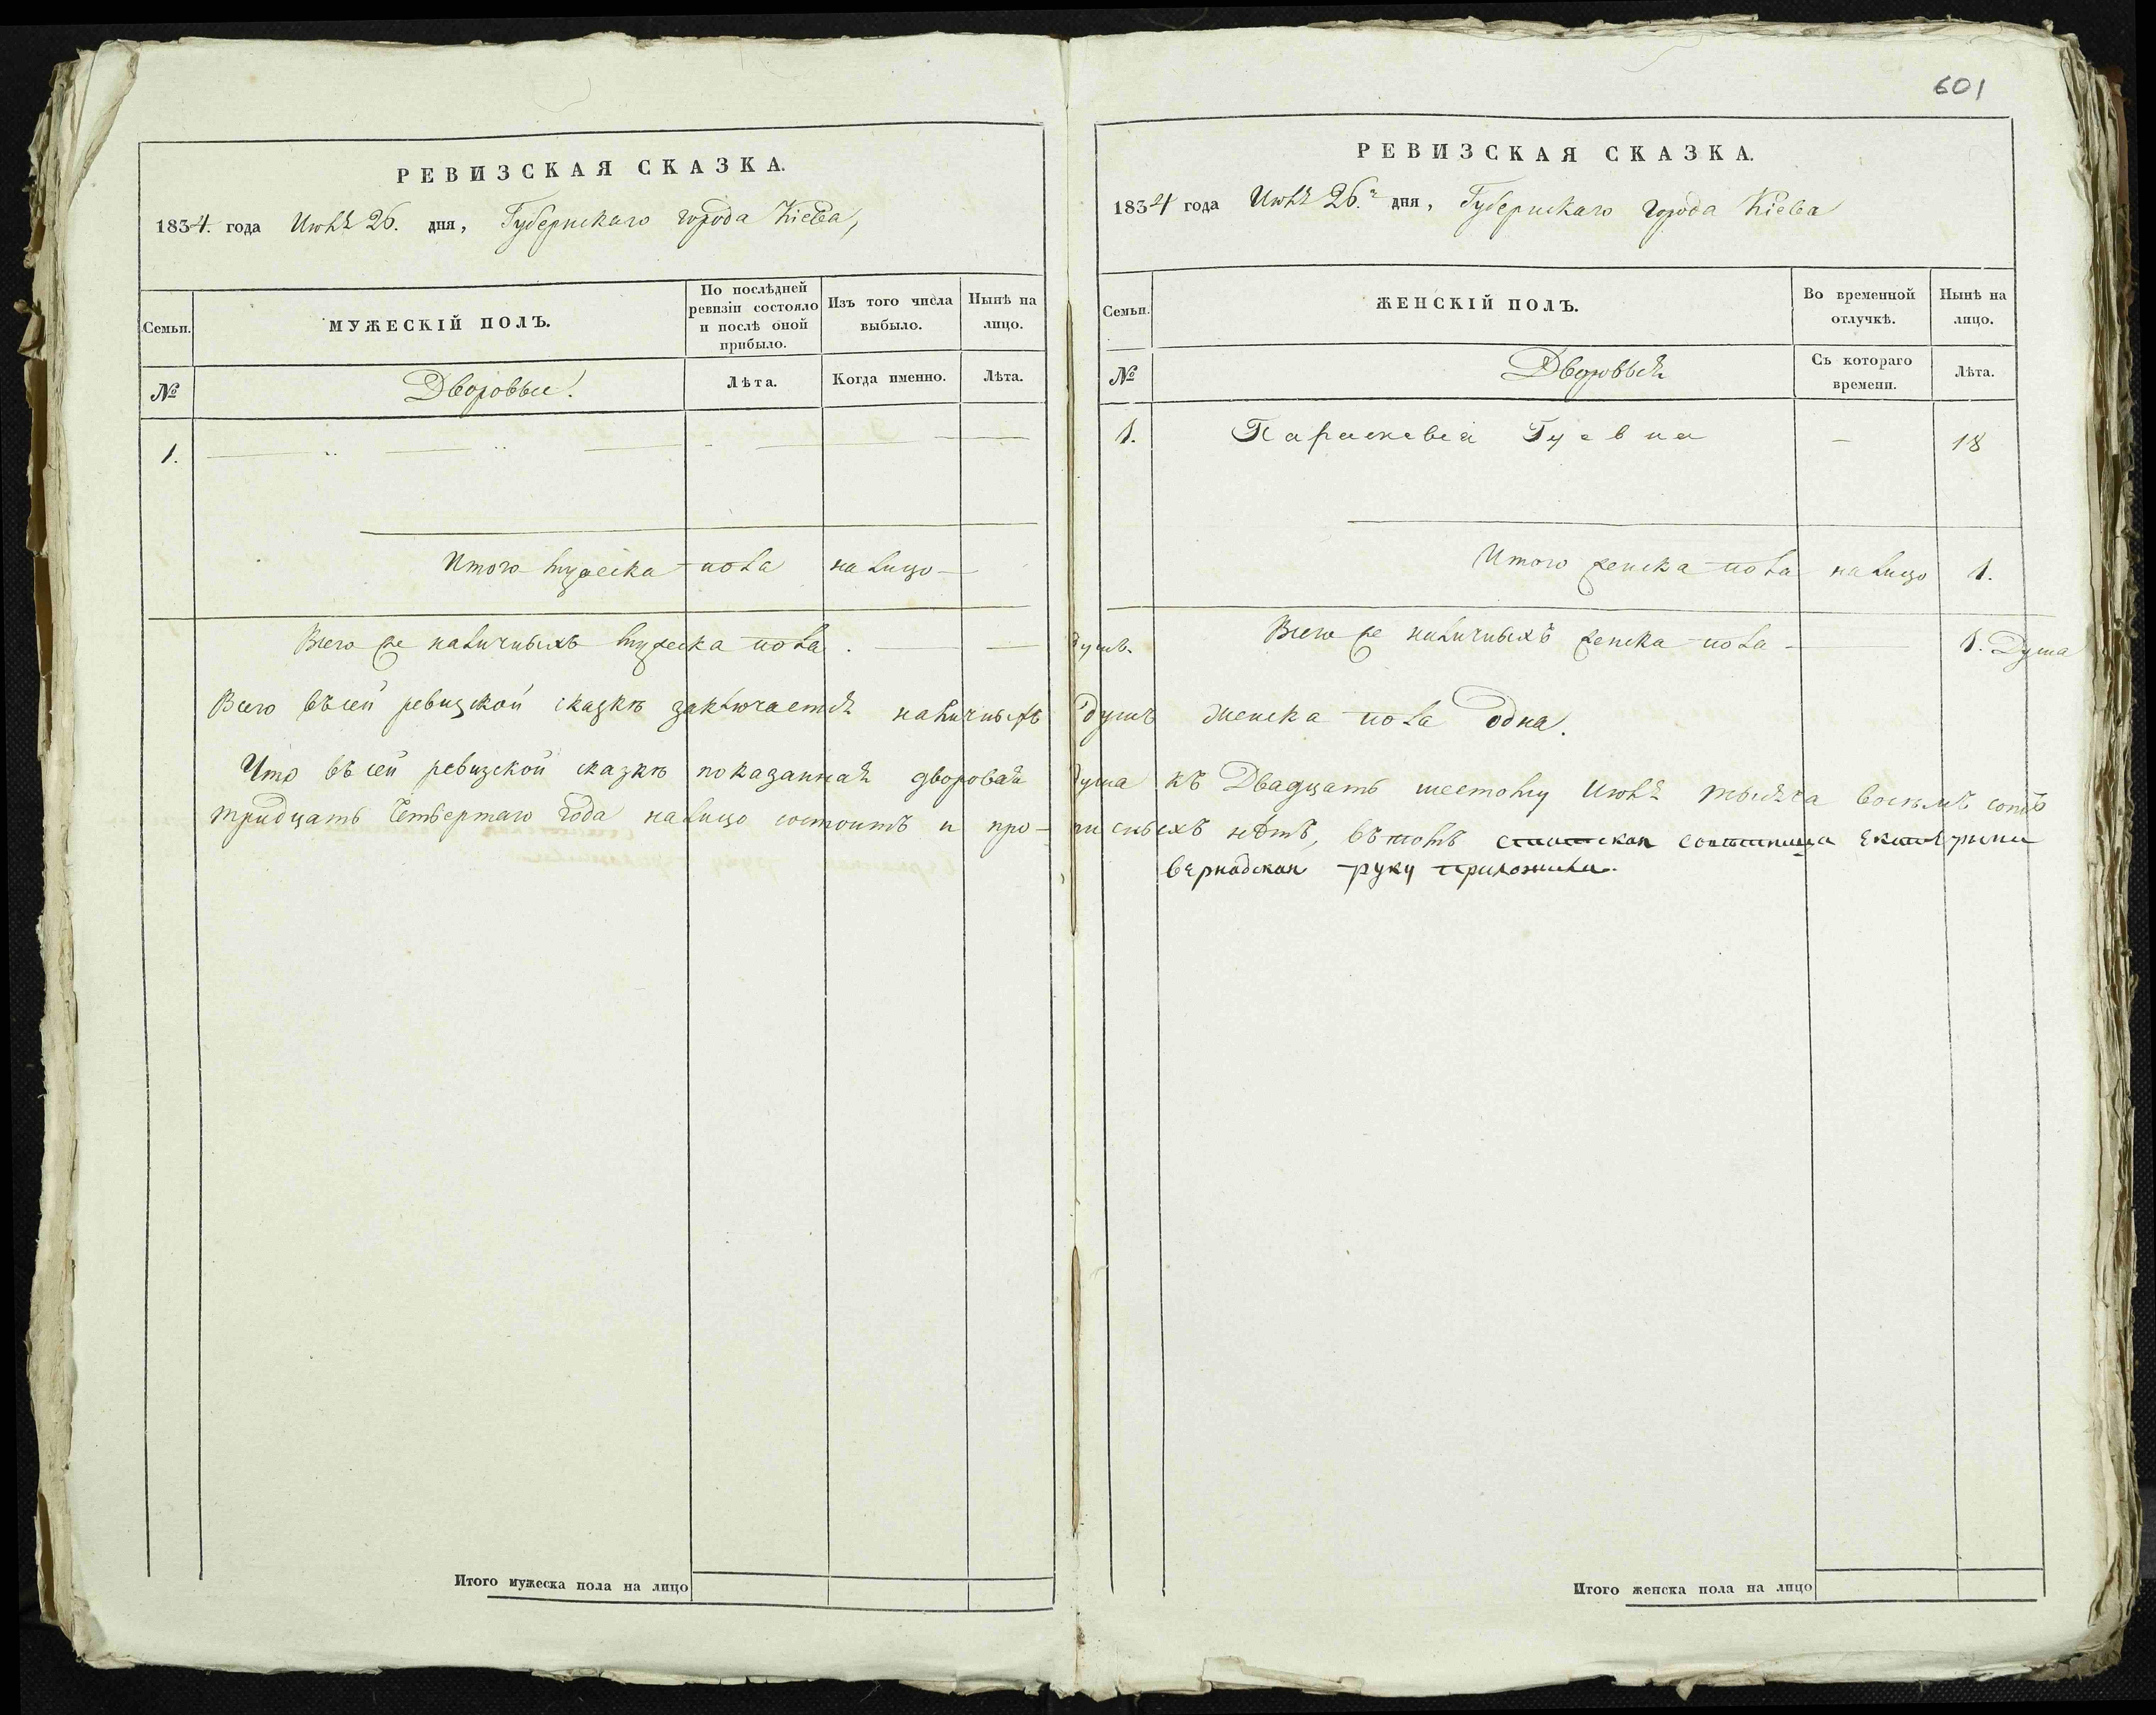 601
РЕВИЗСКАЯ СКАЗКА.
1834. года Июля 26. дня, Губернскаго города Кіева,
Семьи.
МУЖЕСКІЙ ПОЛЪ.
По послѣдней ревизіи состояло и послѣ оной прибыло.
Изъ того числа выбыло.
Нынѣ на лицо.
№
Дворовыи.
Лѣта.
Когда именно.
Лѣта.
1.
Итого мужеска пола налицо —
Всего же наличныхъ мужеска пола . — — душъ.
РЕВИЗСКАЯ СКАЗКА.
1834 года Июля 26.го дня, Губернскаго города Кіева
Семьи.
ЖЕНСКІЙ ПОЛЪ.
Во временной отлучкѣ.
Нынѣ на лицо.
№
Дворовыя
Съ котораго времени.
Лѣта.
1. Параскевия Гуевна — 18
Итого женска пола налицо 1.
Всего же наличныхъ женска пола — 1. Душа
Всего въ сей ревизской сказкѣ заключается наличныхъ душъ женска пола одна.
Что въ сей ревизской сказкѣ показанная дворовая душа къ Двадцать шестому Июля тысяча восемь сотъ
тридцать Четвертаго года налицо состоитъ и прописныхъ нѣтъ, въ томъ статская советница Екатерина
вернадская руку приложила.
Итого мужеска пола на лицо
Итого женска пола на лицо